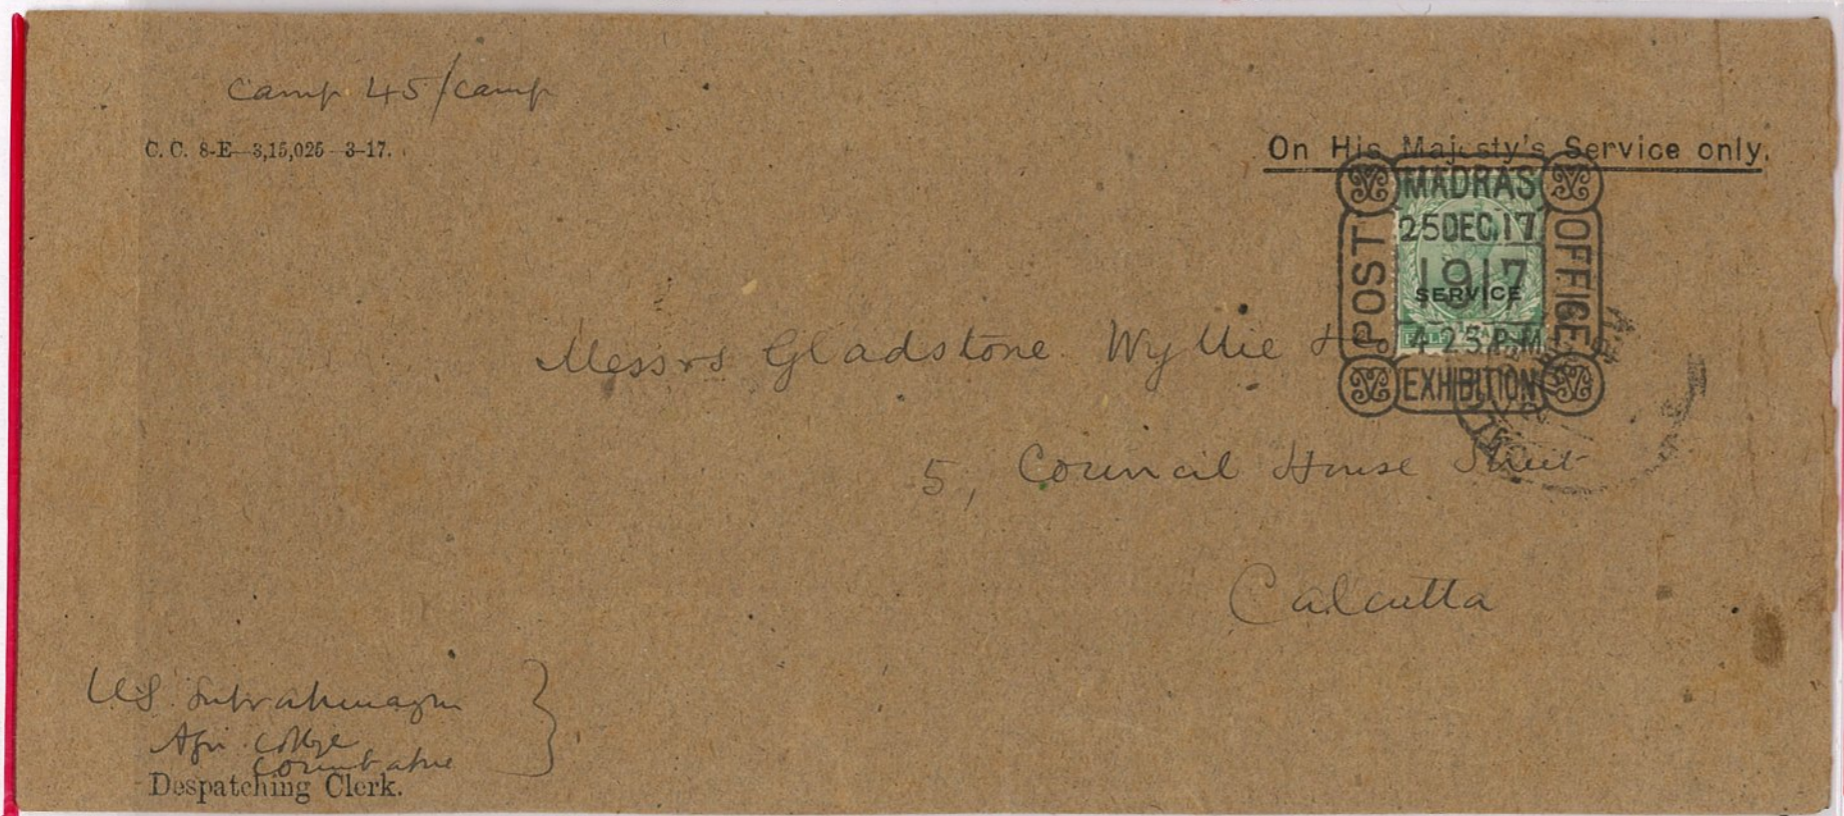 Camp 45/Camp
C. C. 8-E—3,15,025—3-17.
On His Majesty's Service only.
MADRAS
POST
25 DEC. 17
OFFICE
1917
SERVICE
4-25 P.M
EXHIBITION
Messrs Gladstone Wyllie
5, Council House Street
Calcutta
Subrahmanyam
Agri. College
Coimbatore
Despatching Clerk.